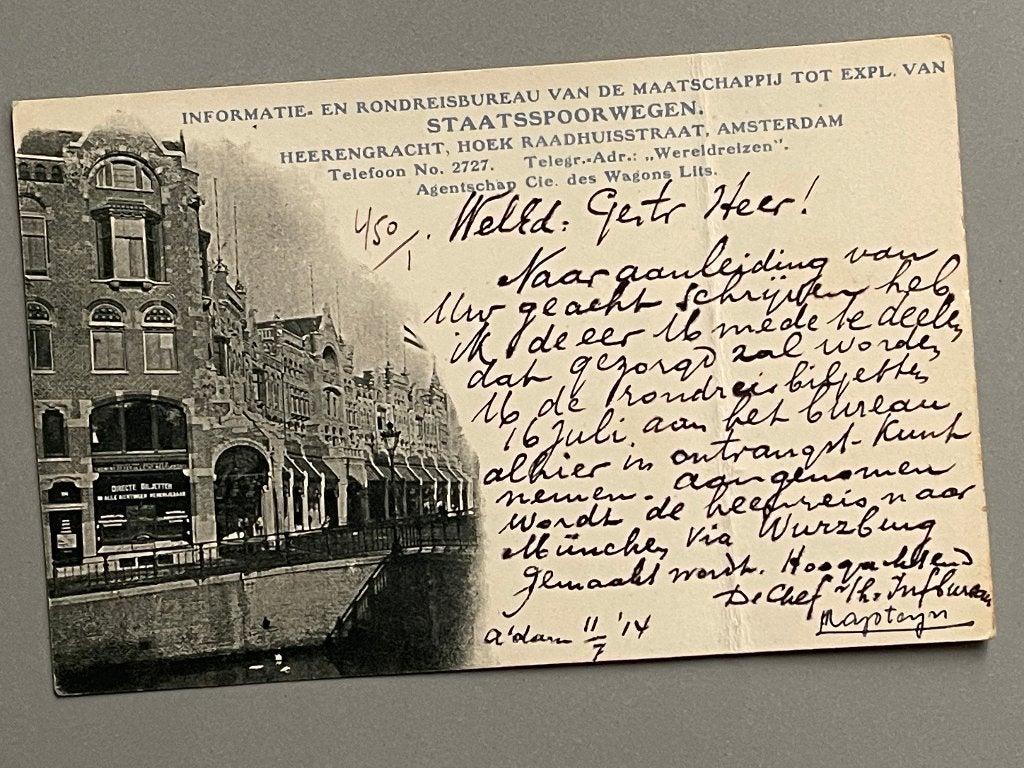 INFORMATIE- EN RONDREISBUREAU VAN DE MAATSCHAPPIJ TOT EXPL. VAN
STAATSSPOORWEGEN.
HEERENGRACHT, HOEK RAADHUISSTRAAT, AMSTERDAM
Telefoon No. 2727. Telegr.-Adr.: „Wereldreizen".
Agentschap Cie. des Wagons Lits.
450/1.
WelEd: Gestr Heer!
Naar aanleiding van
Uw geacht schrijven heb
ik de eer U mede te deelen
dat gezorgd zal worden
U de rondreisbiljetten
16 Juli aan het bureau
alhier in ontvangst kunt
nemen. Aangenomen
wordt de heenreis naar
München via Wurzburg
gemaakt wordt. Hoogachtend
De Chef v/h. Inf bureau
Kapteyn
A'dam 11/7 '14
DIRECTE BILJETTEN